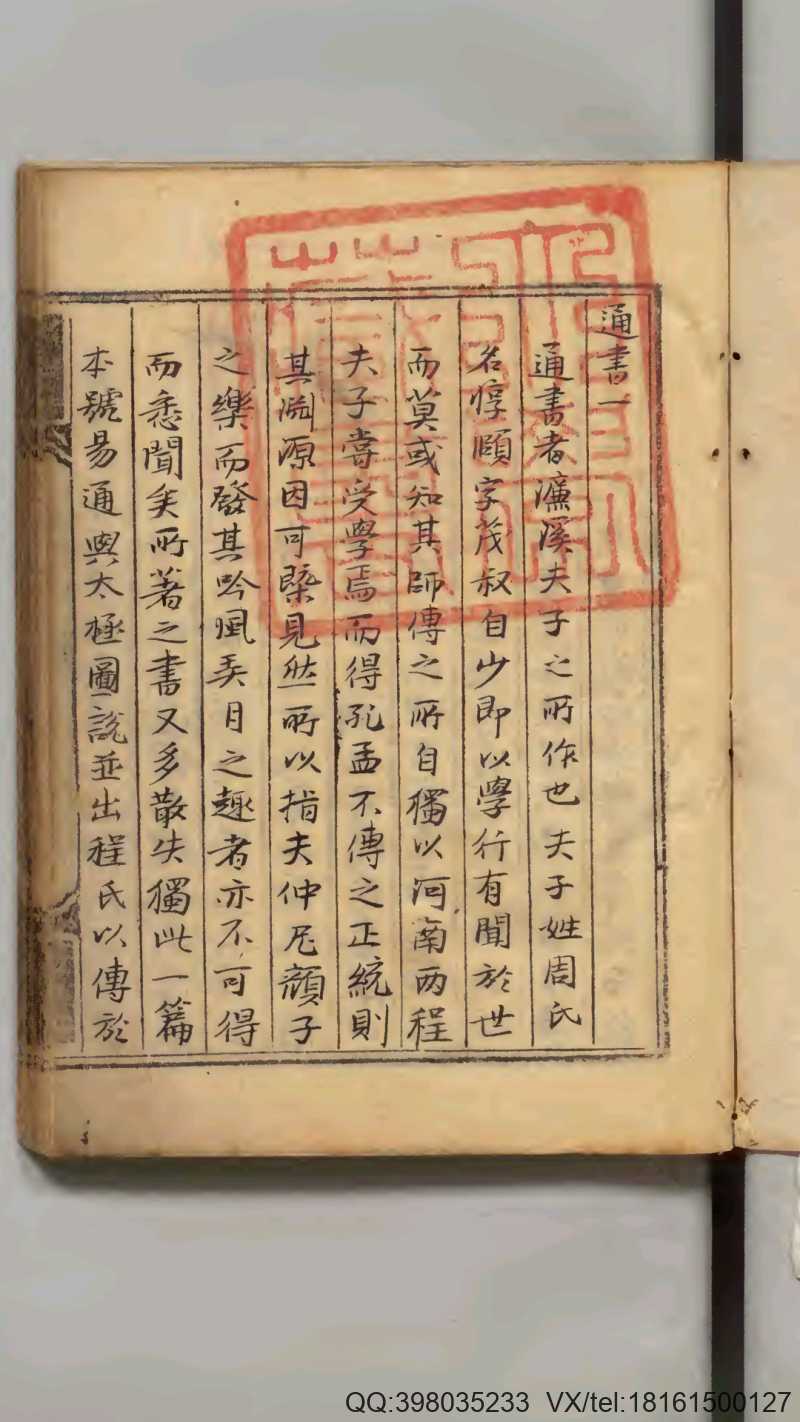 通書一
通書者濂溪夫子之所作也夫子姓周氏
名惇頤字茂叔自少即以學行有聞於世
而莫或知其師傳之所自獨以河南两程
夫子嘗受學焉而得孔孟不傳之正統則
其淵源因可槩見然所以指夫仲尼顏子
之樂而發其吟風弄月之趣者亦不可得
而悉聞矣所著之書又多散失獨此一篇
本號易通與太極圖說並出程氏以傳於
QQ:398035233 VX/tel:18161500127